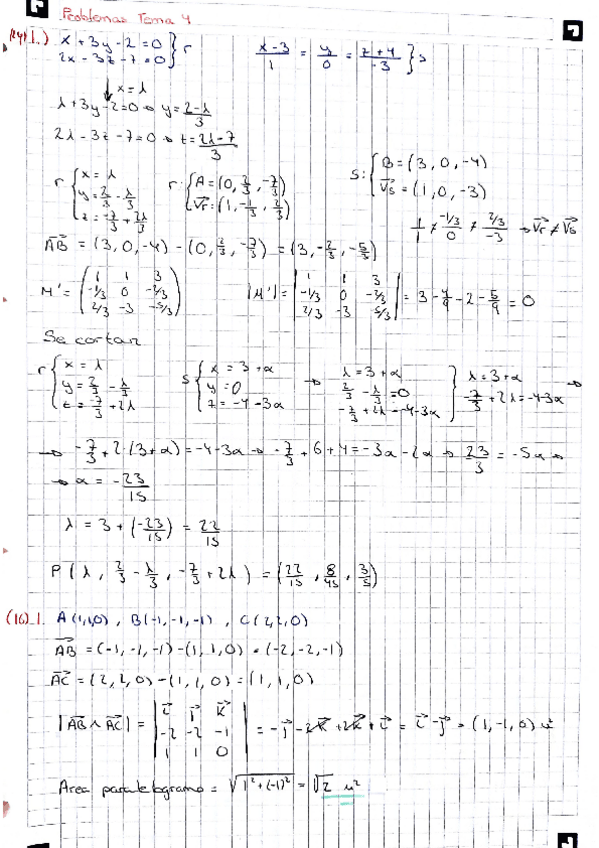 Problemas Tema 4
1.) x + 3y - 2 = 0
2x - 3z - 7 = 0 } r
x-3/1 = y/0 = z+4/-3 } s
x = λ
λ + 3y - 2 = 0 → y = 2-λ/3
2λ - 3z - 7 = 0 → z = 2λ-7/3
r { x = λ
y = 2/3 - λ/3
z = -7/3 + 2λ/3
r: { A = (0, 2/3, -7/3)
Vr = (1, -1/3, 2/3)
s: { B = (3, 0, -4)
Vs = (1, 0, -3)
1/1 ≠ -1/3/0 ≠ 2/3/-3 → Vr ≠ Vs
AB = (3, 0, -4) - (0, 2/3, -7/3) = (3, -2/3, -5/3)
M' = ( 1 1 3
-1/3 0 -2/3
2/3 -3 -5/3 )
|M'| = | 1 1 3
-1/3 0 -2/3
2/3 -3 -5/3 | = 3 - 4/9 - 2 - 5/9 = 0
Se cortan
r { x = λ
y = 2/3 - λ/3
z = -7/3 + 2λ
s { x = 3 + α
y = 0
z = -4 - 3α
→ λ = 3 + α
2/3 - λ/3 = 0
-7/3 + 2λ = -4 - 3α
} λ = 3 + α
-7/3 + 2λ = -4 - 3α →
→ -7/3 + 2·(3+α) = -4 - 3α → -7/3 + 6 + 4 = -3α - 2α → 23/3 = -5α →
→ α = -23/15
λ = 3 + (-23/15) = 22/15
P (λ, 2/3 - λ/3, -7/3 + 2λ) = (22/15, 8/45, 3/5)
(16) 1. A (1,1,0), B (-1,-1,-1), C (2,2,0)
AB = (-1,-1,-1) - (1,1,0) = (-2,-2,-1)
AC = (2,2,0) - (1,1,0) = (1,1,0)
|AB ∧ AC| = | i j k
-2 -2 -1
1 1 0 | = -j - 2k + 2k + i = i - j = (1,-1,0) u²
Area paralelogramo = √1² + (-1)² = √2 u²